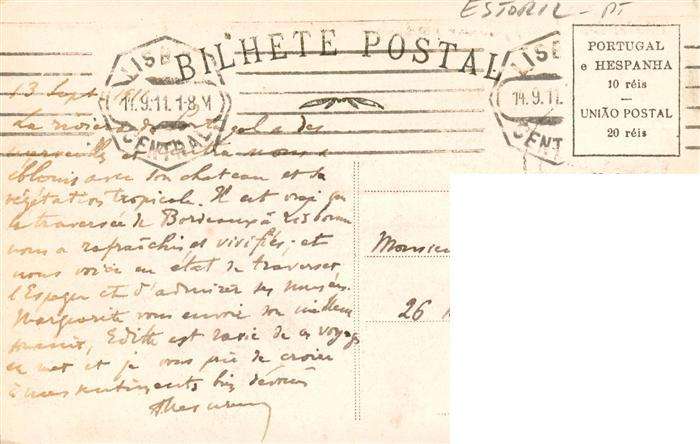 ESTORIL - PT
BILHETE POSTAL
LISBOA
14.9.11. 1-8 M
CENTRAL
LISB
14.9.11.
CENT
PORTUGAL
e HESPANHA
10 réis
UNIÃO POSTAL
20 réis
13 Sept
La riviera de Portugal a des
merveilles et Cintra nous a
éblouis avec son chateau et sa
végétation tropicale. Il est vrai que
la traversée de Bordeaux à Lisbonne
nous a rafraîchis et vivifiés; et
nous voici en état de traverser
l'Espagne et d'admirer ses musées.
Marguerite vous envoie son meilleur
souvenir, Edith est ravie de ce voyage
en mer et je vous prie de croire
à mes sentiments bien dévoués
Monsieu
26